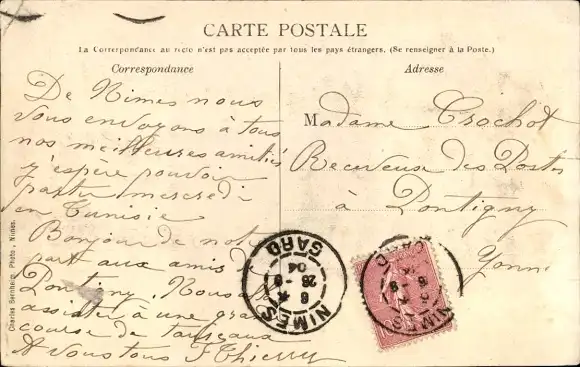 CARTE POSTALE
La Correspondance au recto n'est pas acceptée par tous les pays étrangers. (Se renseigner à la Poste.)
Correspondance
Adresse
De Nimes nous
vous envoyons à tous
nos meilleures amitiés
j'espère pouvoir
partir mercredi
en Tunisie
Bonjour de notre
part aux amis de
Pontigny. Nous
assister à une
course de taureaux
A vous tous FThierry
Madame Crochot
Receveuse des Postes
à Pontigny
Yonne
NIMES
GARD
6
26 - 9
04
NIMES
GARD
Charles Bernheim, Photo., Nimes.